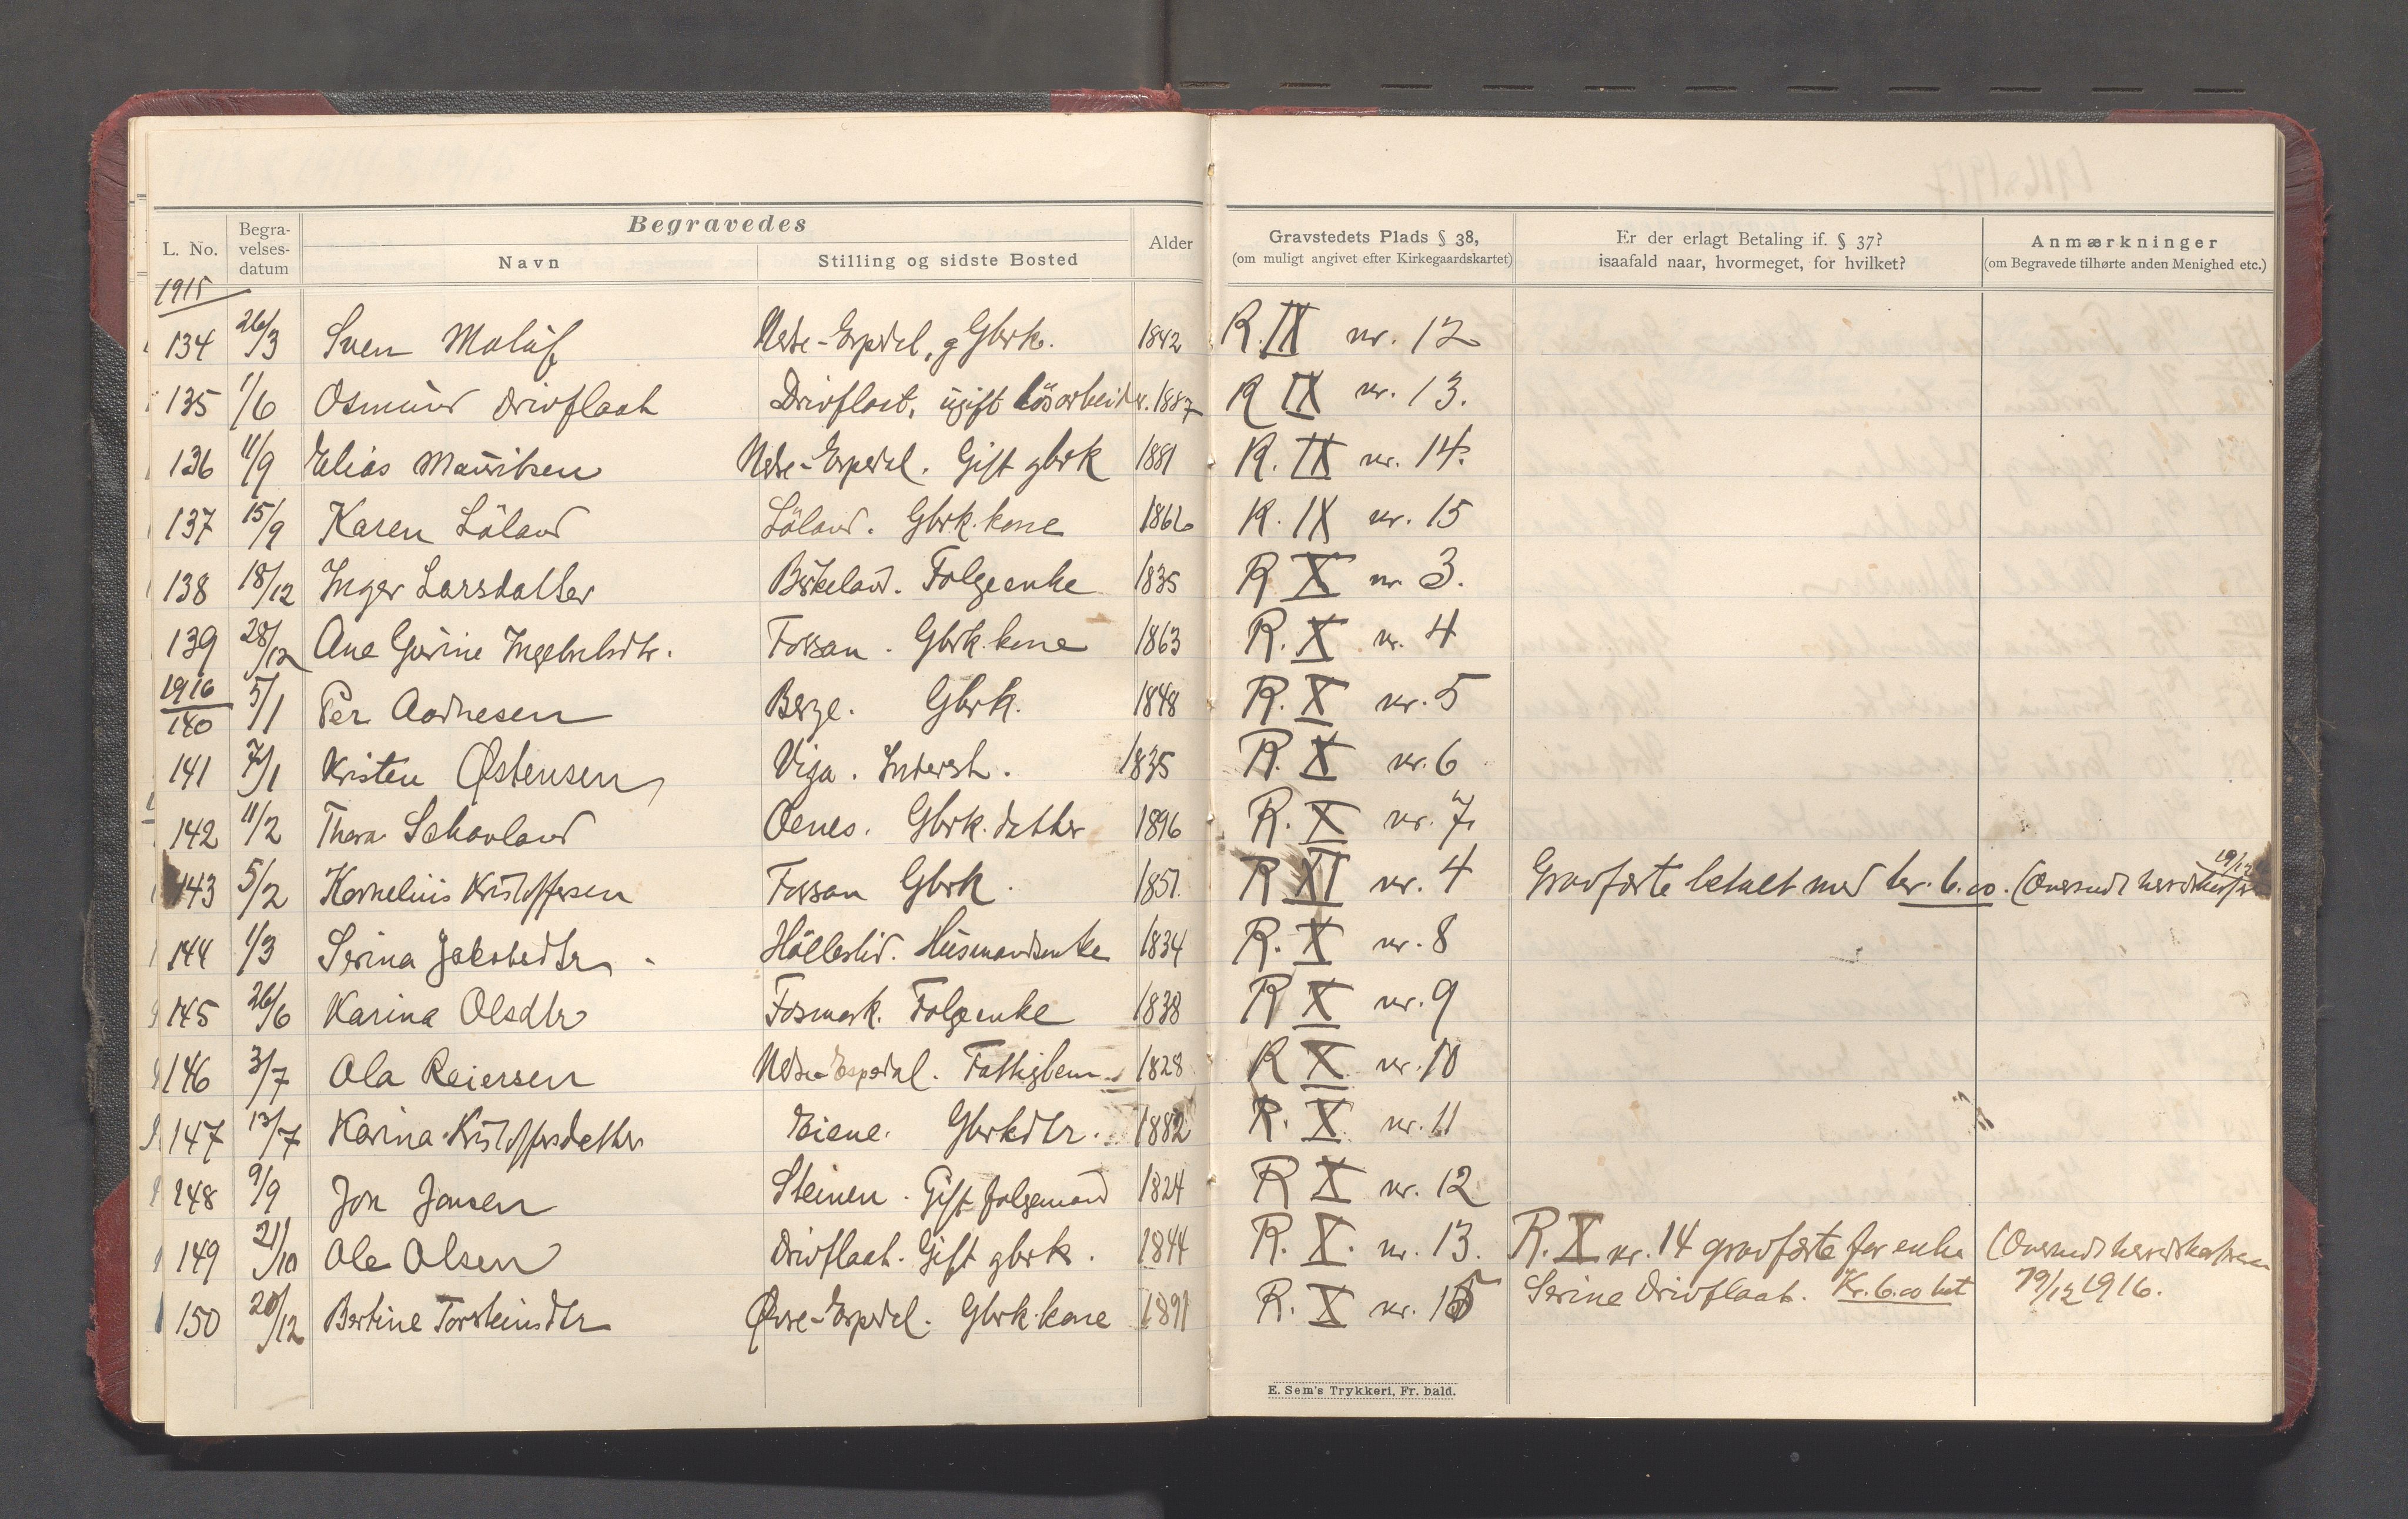 Begravedes
L. No. Begravelsesdatum Navn Stilling og sidste Bosted Alder Gravstedets Plads § 38, (om muligt angivet efter Kirkegaardskartet) Er der erlagt Betaling if. § 37? isaafald naar, hvormeget, for hvilket? Anmærkninger (om Begravede tilhørte anden Menighed etc.)
1915
134 26/3 Sven Molaug Nedre-Espedal, g Gbrk. 1842 R. IX nr. 12
135 1/6 Osmund Drivflaat Drivflaat, ugift løsarbeider. 1887 R IX nr. 13.
136 11/9 Elias Mauritsen Nedre-Espedal. Gift gbrk 1881 R. IX nr. 14.
137 15/9 Karen Löland Löland. Gbrk. kone 1862 R. IX nr. 15
138 18/12 Inger Larsdatter Birkeland. Folgeenke 1835 R X nr 3.
139 28/12 Ane Gurine Ingebrektsdtr. Fossan. Gbrk. kone 1863 R. X nr. 4
1916
140 5/1 Per Aadnesen Berge. Gbrk. 1848 R. X nr. 5
141 7/1 Kristen Østensen Viga. Inderst. 1835 R. X nr. 6
142 11/2 Thora Schavland Oenes. Gbrk. datter 1896 R. X nr. 7
143 5/2 Kornelius Kristoffersen Fossan Gbrk. 1851. R XI nr. 4 Gravfæste betalt med kr. 6.00. (Oversendt herredskassereren 19/12
144 1/3 Serina Jakobsdtr. Hölleslid. Husmandsenke 1834 R. X nr. 8
145 26/6 Karina Olsdtr Fosmark. Folgeenke 1838 R X nr. 9
146 3/7 Ola Reiersen Nedre-Espedal. Fattiglem. 1828 R X nr. 10
147 13/7 Karina Kristoffersdatter Eiene. Gbrkdtr. 1882 R. X nr. 11
148 9/9 Jon Jonsen Steinen. Gift folgemand 1824 R X nr. 12
149 21/10 Ole Olsen Drivflaat. Gift gbrk. 1844 R. X. nr. 13. R. X nr. 14 gravfæste for enke (Oversendt herredskassereren
150 20/12 Bertine Torsteinsdtr Øvre-Espedal. Gbrk. kone 1891 R. X nr. 15 Serine Drivflaat. Kr. 6.00 bet 19/12 1916.
E. Sem's Trykkeri, Fr. hald.